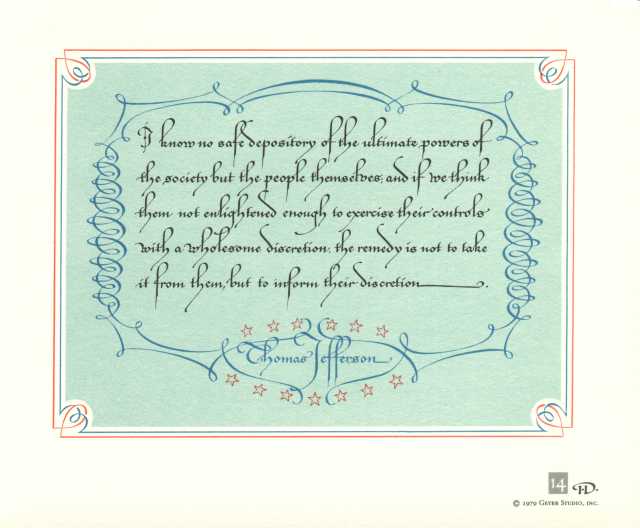 I know no safe depository of the ultimate powers of
the society but the people themselves; and if we think
them not enlightened enough to exercise their controls
with a wholesome discretion, the remedy is not to take
it from them, but to inform their discretion.
Thomas Jefferson
14 HD.
© 1979 Geyer Studio, Inc.